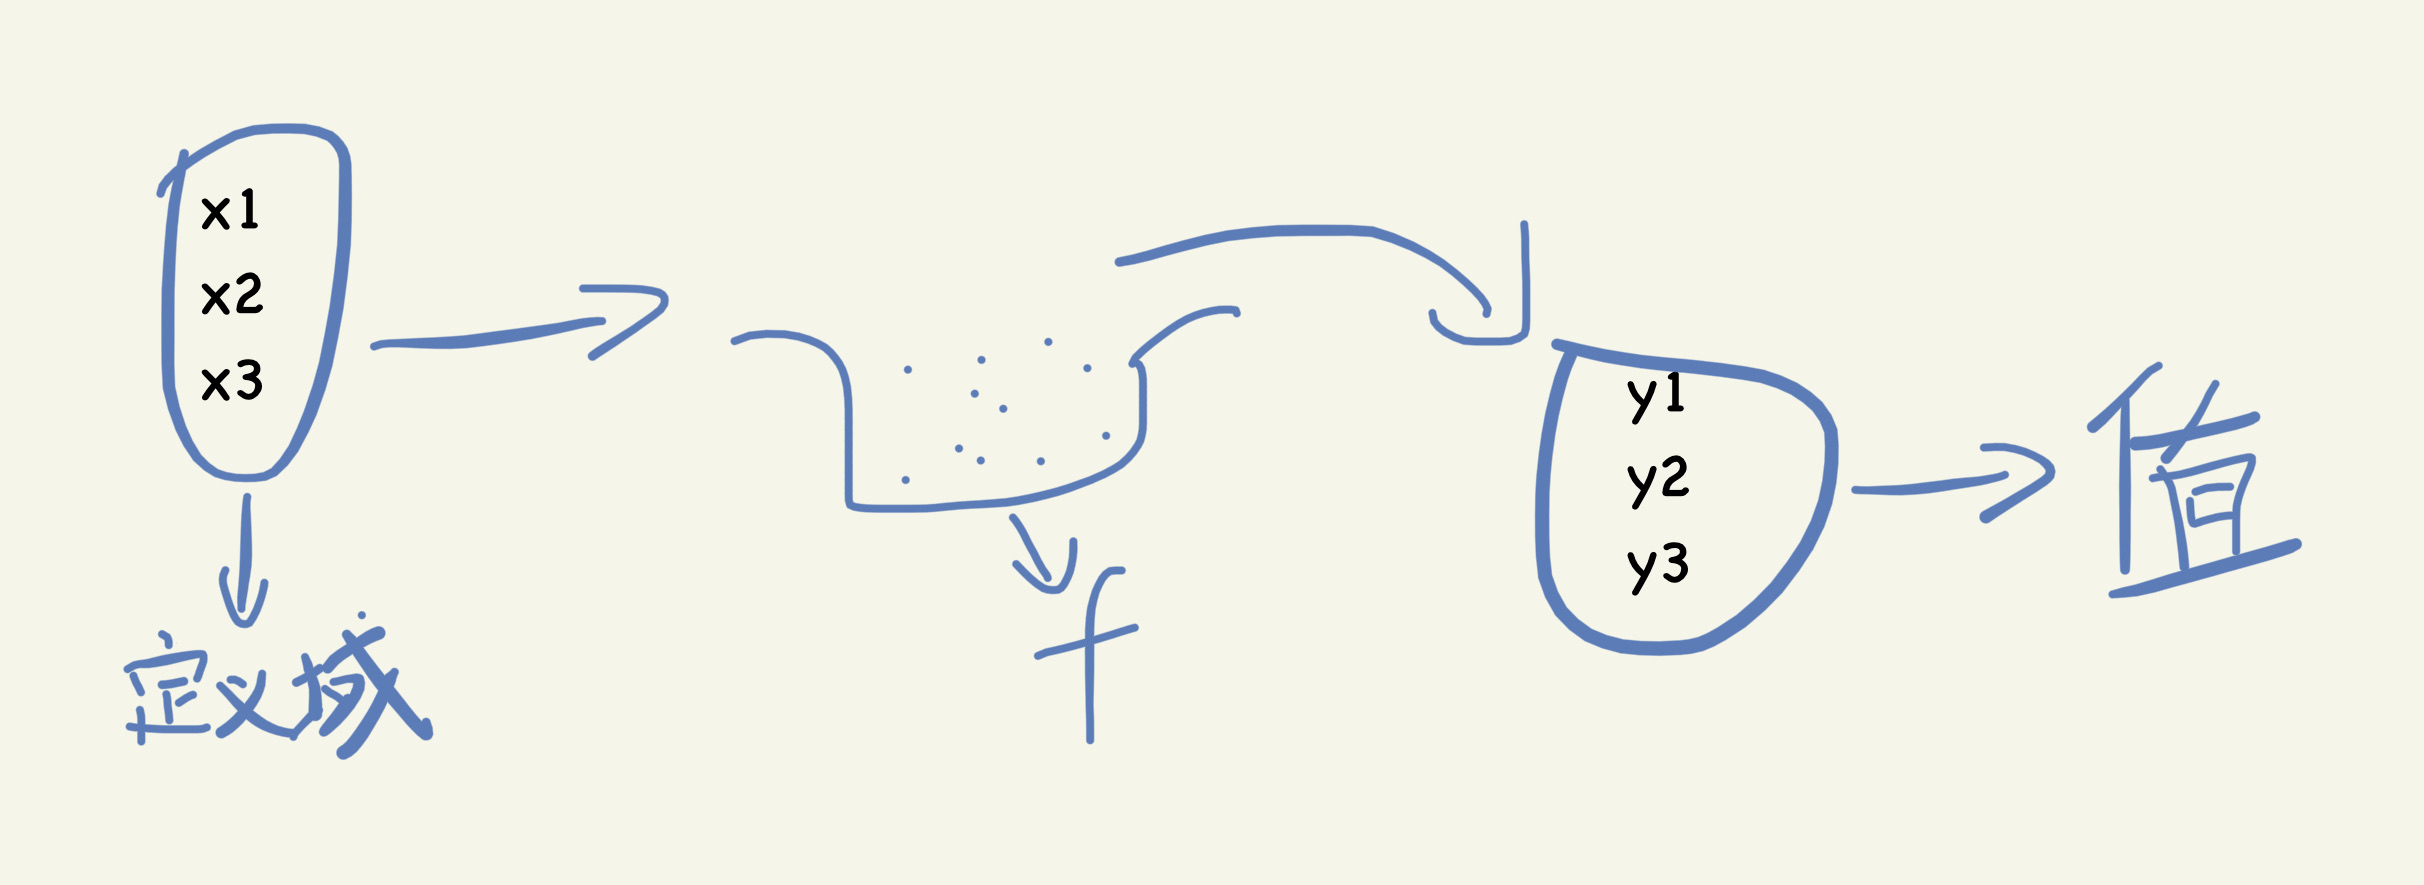 x1
x2
x3
定义域
f
y1
y2
y3
值